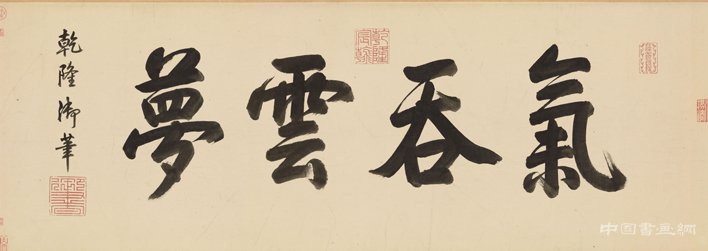 氣吞雲夢
乾隆御筆
乾隆宸翰
中国書画網